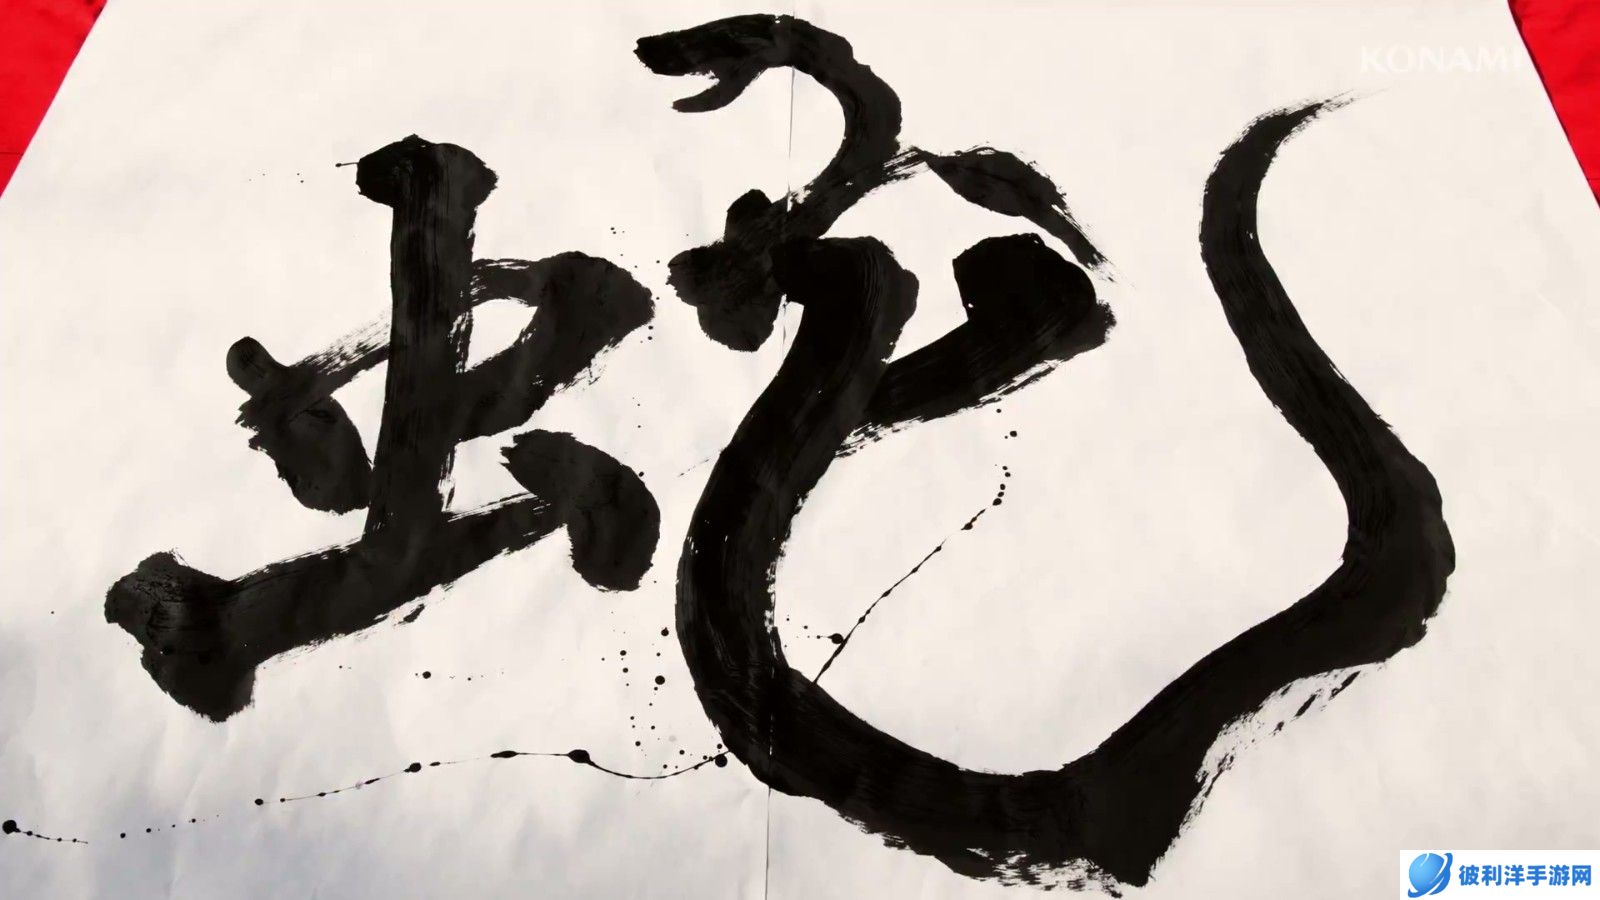 KONAMI
蛇
彼利洋手游网